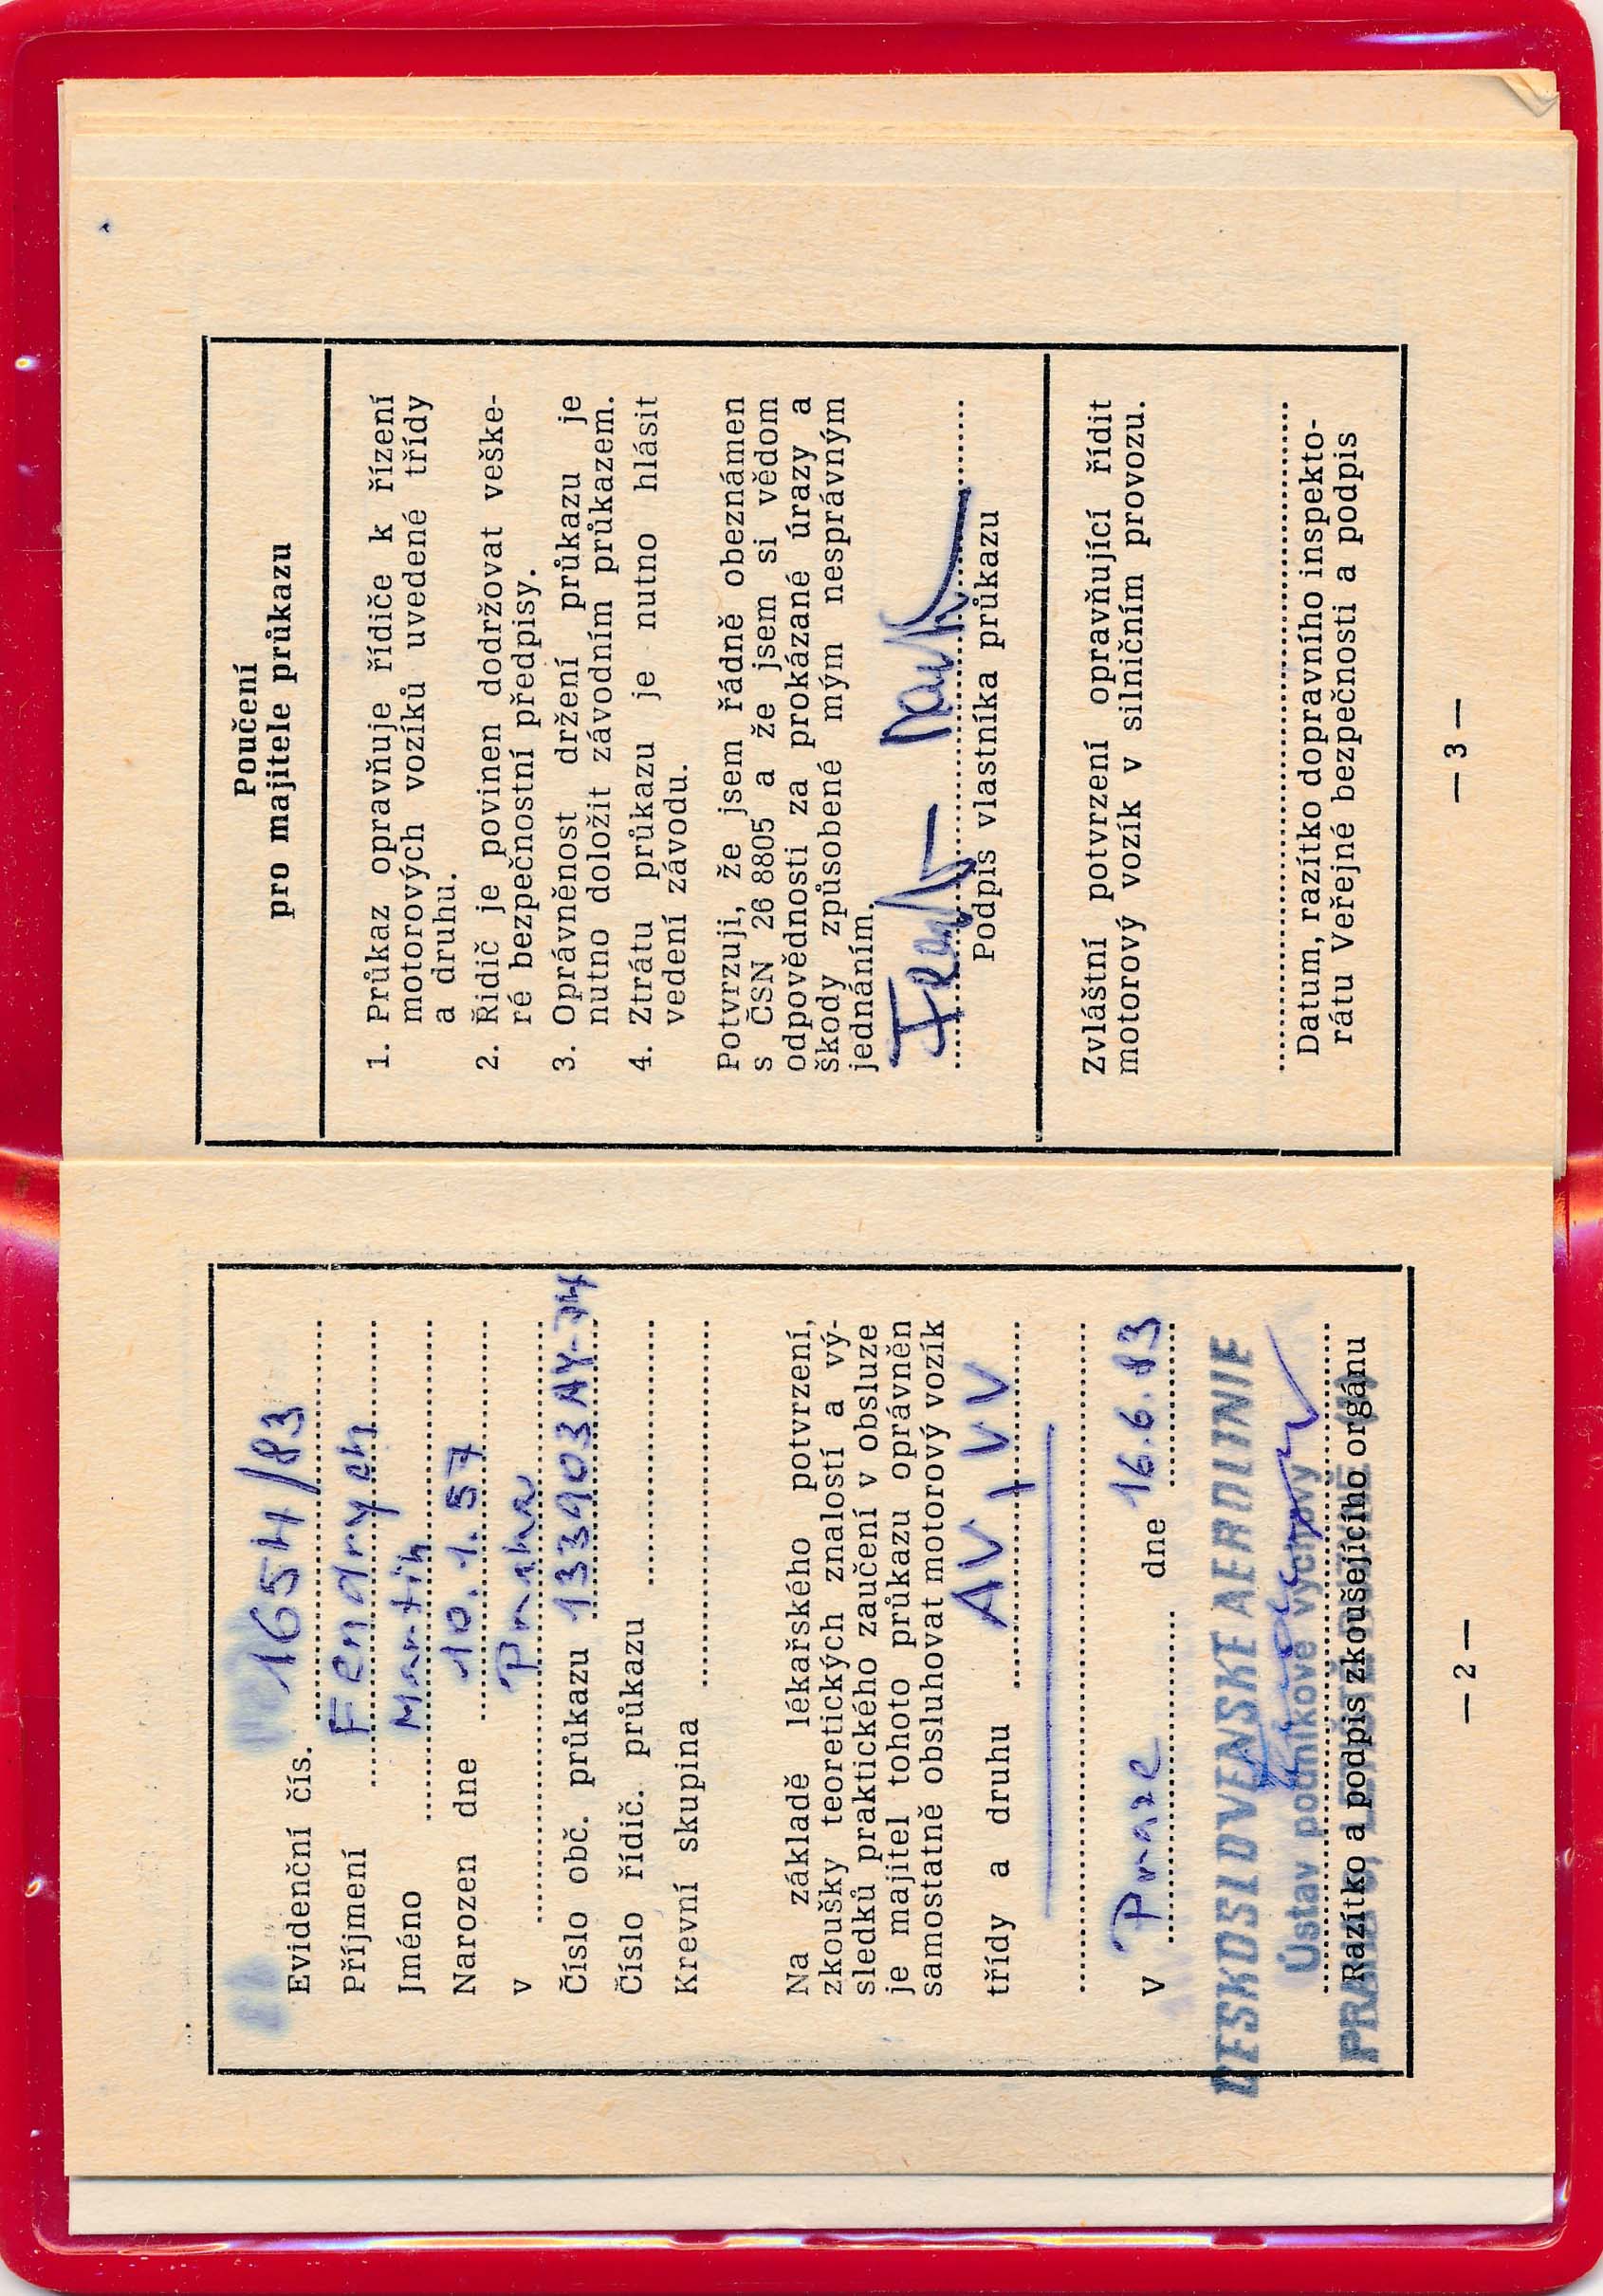 Evidenční čís. 1654/83
Příjmení Fendrych
Jméno Martin
Narozen dne 10.1.57
v Praha
Číslo obč. průkazu 133903 AY-74
Číslo řidič. průkazu
Krevní skupina
Na základě lékařského potvrzení,
zkoušky teoretických znalostí a vý-
sledků praktického zaučení v obsluze
je majitel tohoto průkazu oprávněn
samostatně obsluhovat motorový vozík
třídy a druhu AV + VV
V Praze dne 16.6.83
ČESKOSLOVENSKÉ AEROLINIE
Ústav podnikové výchovy
Razítko a podpis zkoušejícího orgánu
— 2 —
Poučení
pro majitele průkazu
1. Průkaz opravňuje řidiče k řízení
motorových vozíků uvedené třídy
a druhu.
2. Řidič je povinen dodržovat veške-
ré bezpečnostní předpisy.
3. Oprávněnost držení průkazu je
nutno doložit závodním průkazem.
4. Ztrátu průkazu je nutno hlásit
vedení závodu.
Potvrzuji, že jsem řádně obeznámen
s ČSN 26 8805 a že jsem si vědom
odpovědnosti za prokázané úrazy a
škody způsobené mým nesprávným
jednáním.
Podpis vlastníka průkazu
Zvláštní potvrzení opravňující řídit
motorový vozík v silničním provozu.
Datum, razítko dopravního inspekto-
rátu Veřejné bezpečnosti a podpis
— 3 —